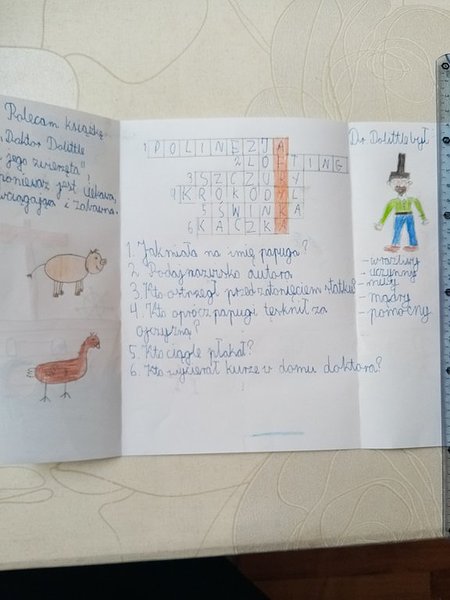 Polecam książkę
"Doktor Dolittle
i jego zwierzęta",
ponieważ jest ciekawa,
wciągająca i zabawna.
1 POLINEZJA
2 LOFTING
3 SZCZURY
4 KROKODYL
5 ŚWINKA
6 KACZKA
1. Jak miała na imię papuga?
2. Podaj nazwisko autora
3. Kto ostrzegł przed zatonięciem statku?
4. Kto oprócz papugi tęsknił za
ojczyzną?
5. Kto ciągle płakał?
6. Kto wycierał kurze w domu doktora?
Dr Dolittle był
- wrażliwy
- uczynny
- miły
- mądry
- pomocny